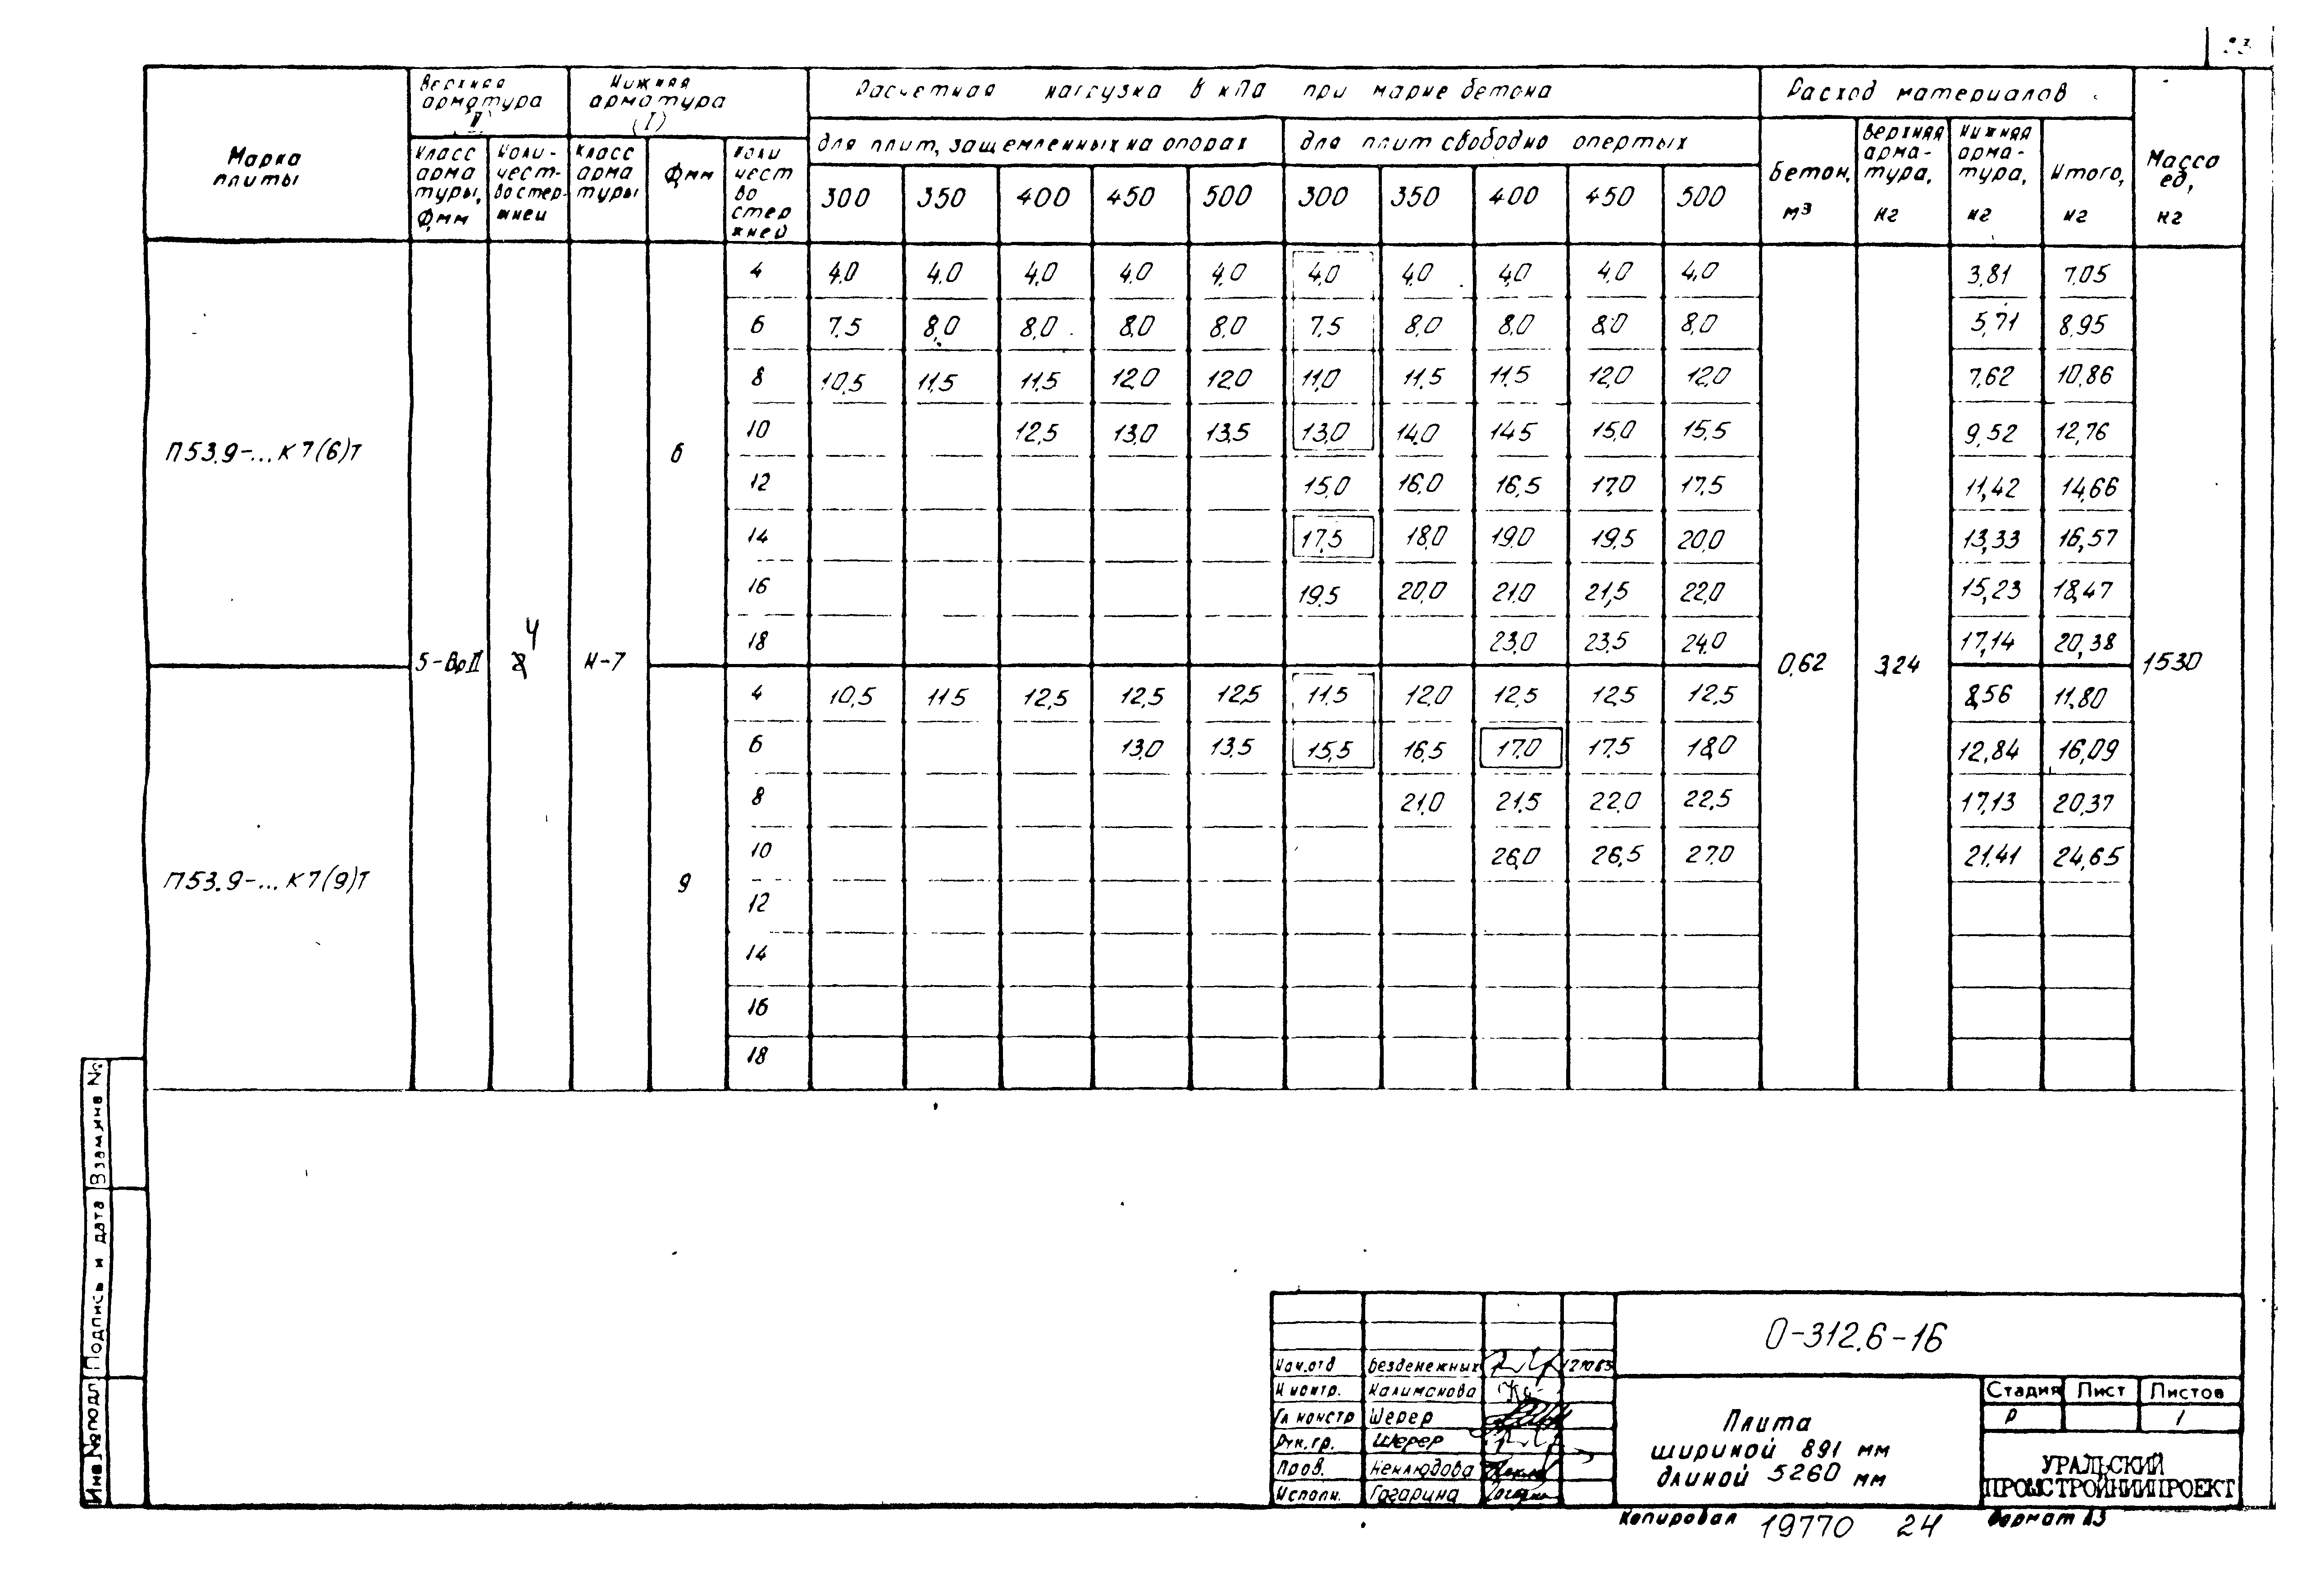 Верхняя арматура (II)
Нижняя арматура (I)
Расчетная нагрузка в кПа при марке бетона
Расход материалов
Марка плиты
Класс арматуры, Фмм
Количество стержней
Класс арматуры
Фмм
Количество стержней
для плит, защемленных на опорах
для плит свободно опертых
Бетон, м3
Верхняя арматура, кг
Нижняя арматура, кг
Итого, кг
Масса ед, кг
300 350 400 450 500 300 350 400 450 500
4 4,0 4,0 4,0 4,0 4,0 4,0 4,0 4,0 4,0 4,0 3,81 7,05
6 7,5 8,0 8,0 8,0 8,0 7,5 8,0 8,0 8,0 8,0 5,71 8,95
8 10,5 11,5 11,5 12,0 12,0 11,0 11,5 11,5 12,0 12,0 7,62 10,86
П53.9-...К7(6)Т 6 10 12,5 13,0 13,5 13,0 14,0 14,5 15,0 15,5 9,52 12,76
12 15,0 16,0 16,5 17,0 17,5 11,42 14,66
14 17,5 18,0 19,0 19,5 20,0 13,33 16,57
16 19,5 20,0 21,0 21,5 22,0 15,23 18,47
18 23,0 23,5 24,0 17,14 20,38
5-ВрII 4 К-7 0,62 3,24 1530
4 10,5 11,5 12,5 12,5 12,5 11,5 12,0 12,5 12,5 12,5 8,56 11,80
6 13,0 13,5 15,5 16,5 17,0 17,5 18,0 12,84 16,09
8 21,0 21,5 22,0 22,5 17,13 20,37
10 26,0 26,5 27,0 21,41 24,65
П53.9-...К7(9)Т 9
12
14
16
18
Взам.инв №
Подпись и дата
Инв № подл.
О-312.6-16
Нач.отд Безденежных
Н контр. Калиманова
Гл констр Шерер
Рук.гр. Шерер
Пров. Неклюдова
Исполн. Гагарина
Плита
шириной 891 мм
длиной 5260 мм
Стадия Лист Листов
Р 1
УРАЛЬСКИЙ
ПРОМСТРОЙНИИПРОЕКТ
Копировал 19770 24 Формат А3